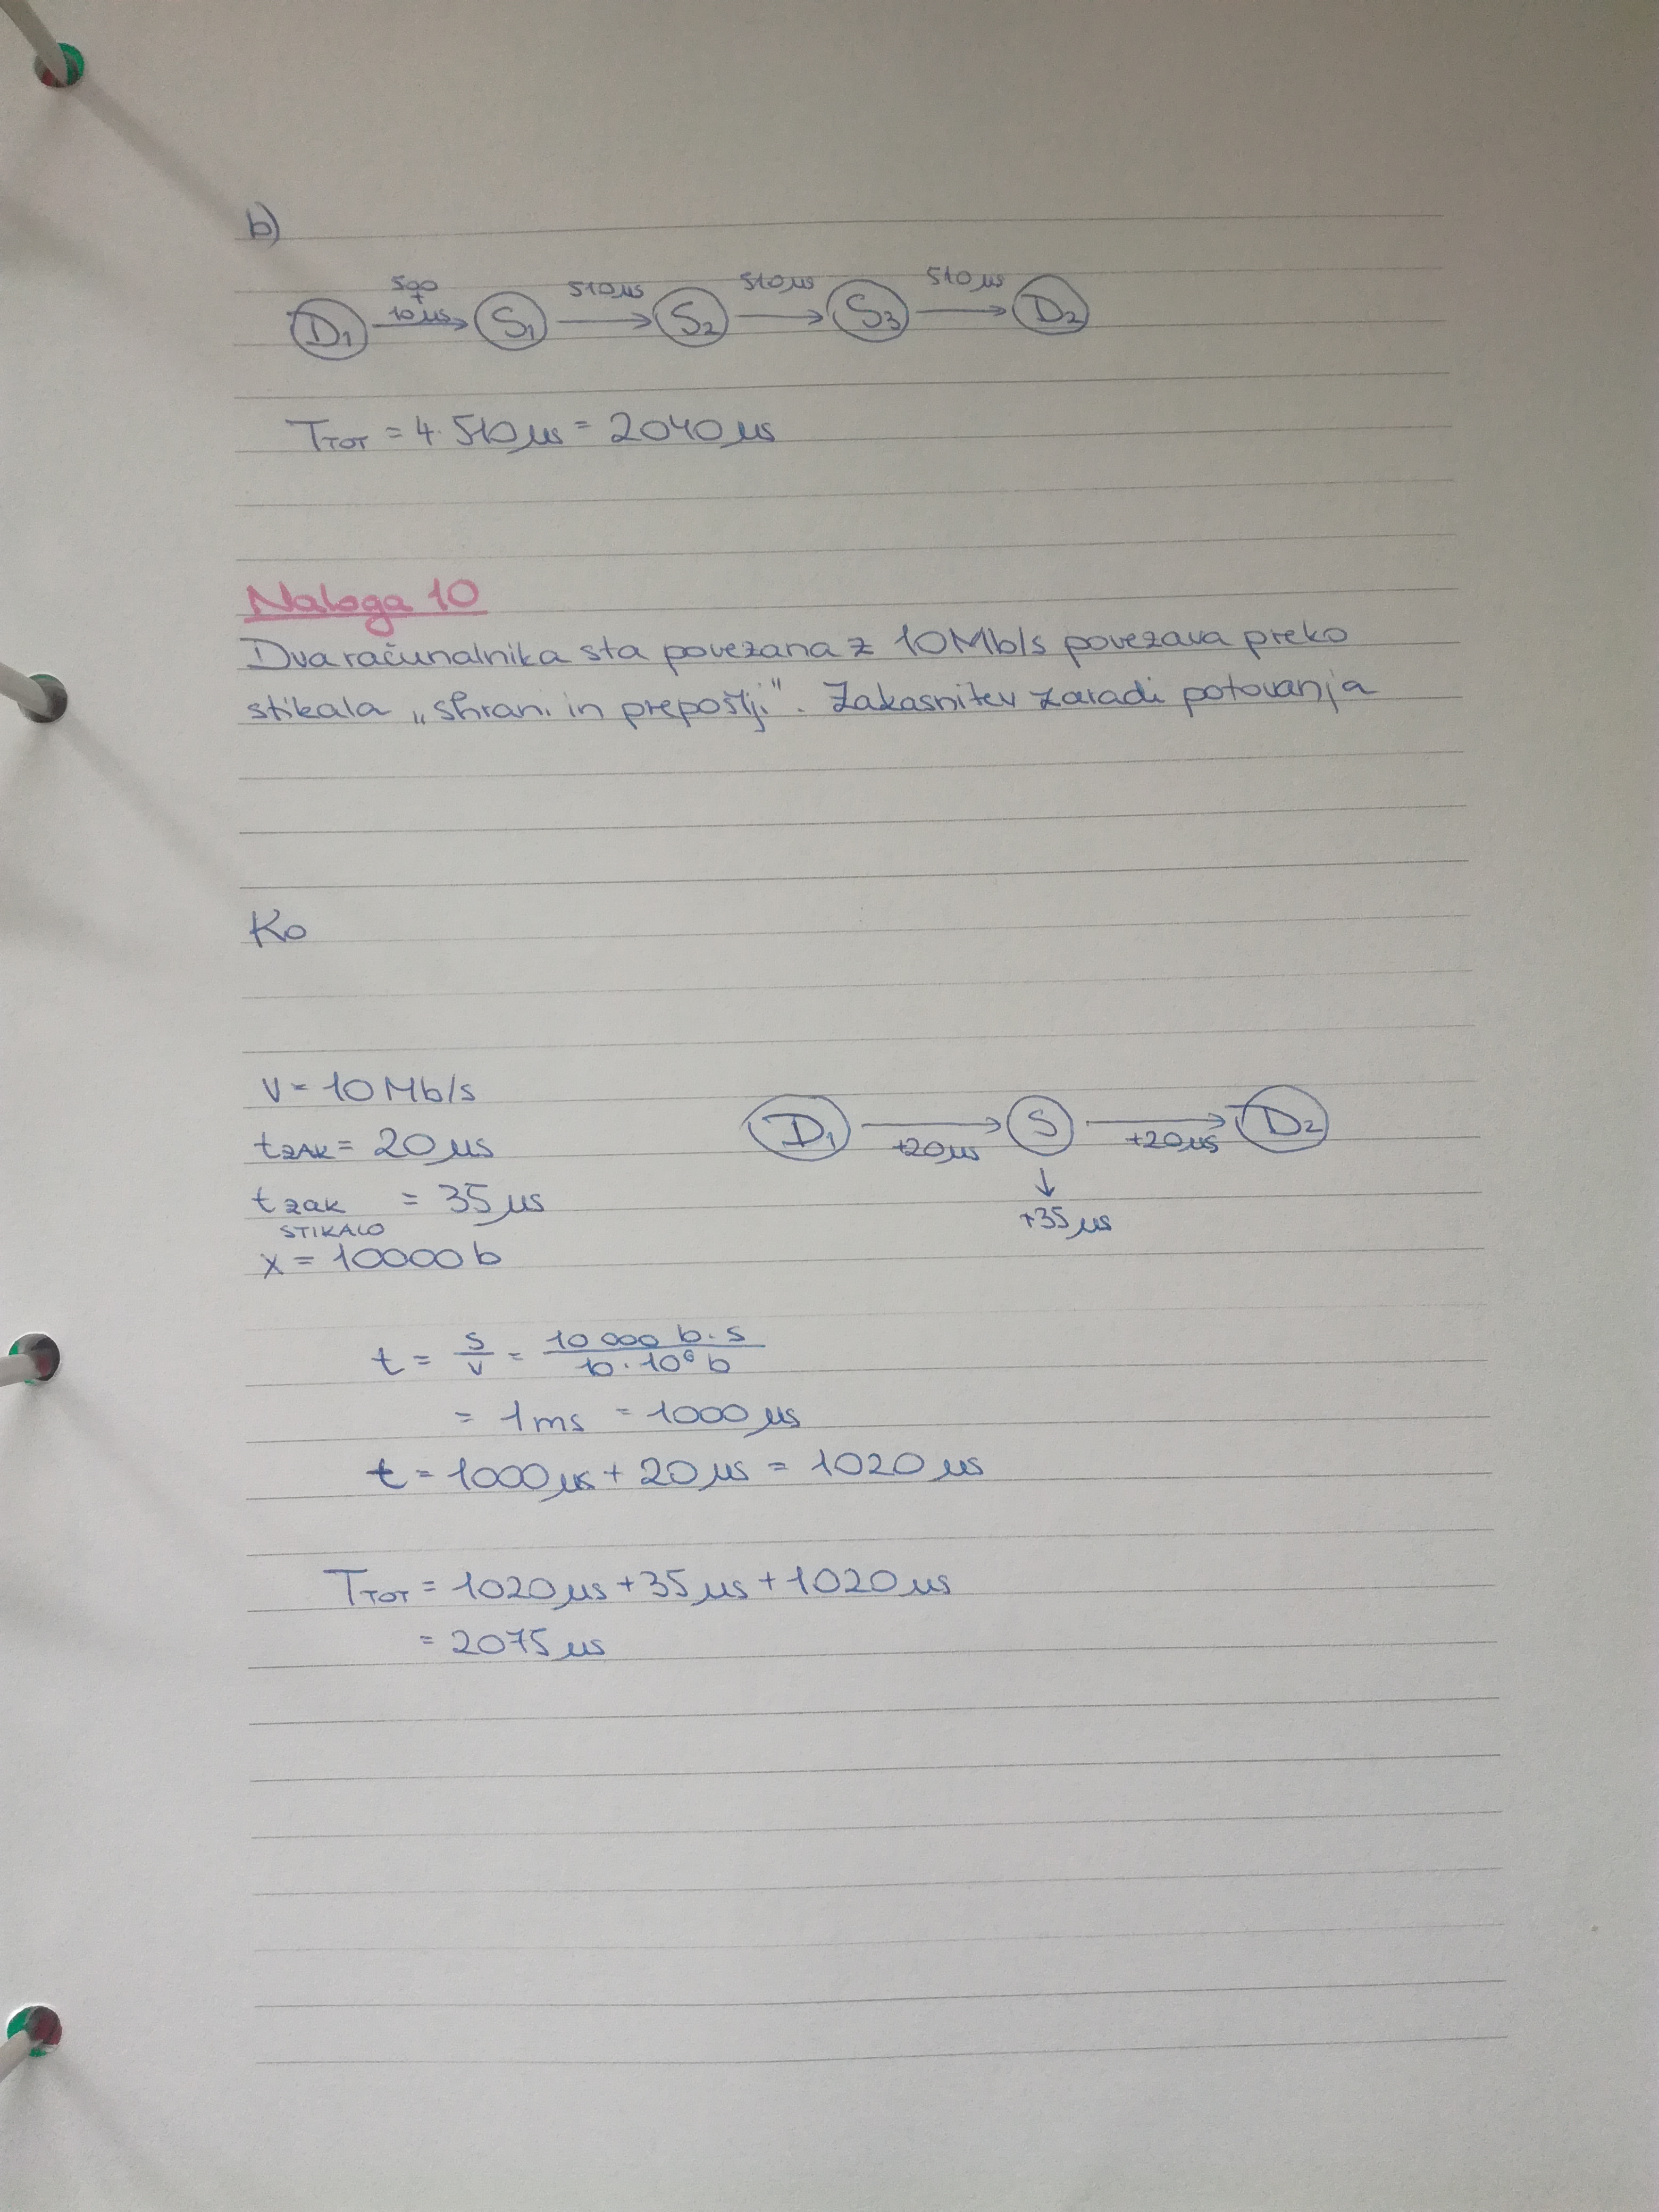 b)
500 + 10 μs 510 μs 510 μs 510 μs
D₁ → S₁ → S₂ → S₃ → D₂
T_TOT = 4 · 510 μs = 2040 μs
Naloga 10
Dva računalnika sta povezana z 10Mb/s povezava preko
stikala „shrani in prepošlji". Zakasnitev zaradi potovanja
Ko
v = 10 Mb/s
t_ZAK = 20 μs
t_zak STIKALO = 35 μs
x = 10000 b
D₁ → S → D₂
+20 μs +20 μs
↓
+35 μs
t = s/v = 10 000 b·s / 10 · 10⁶ b
= 1 ms = 1000 μs
t = 1000 μs + 20 μs = 1020 μs
T_TOT = 1020 μs + 35 μs + 1020 μs
= 2075 μs